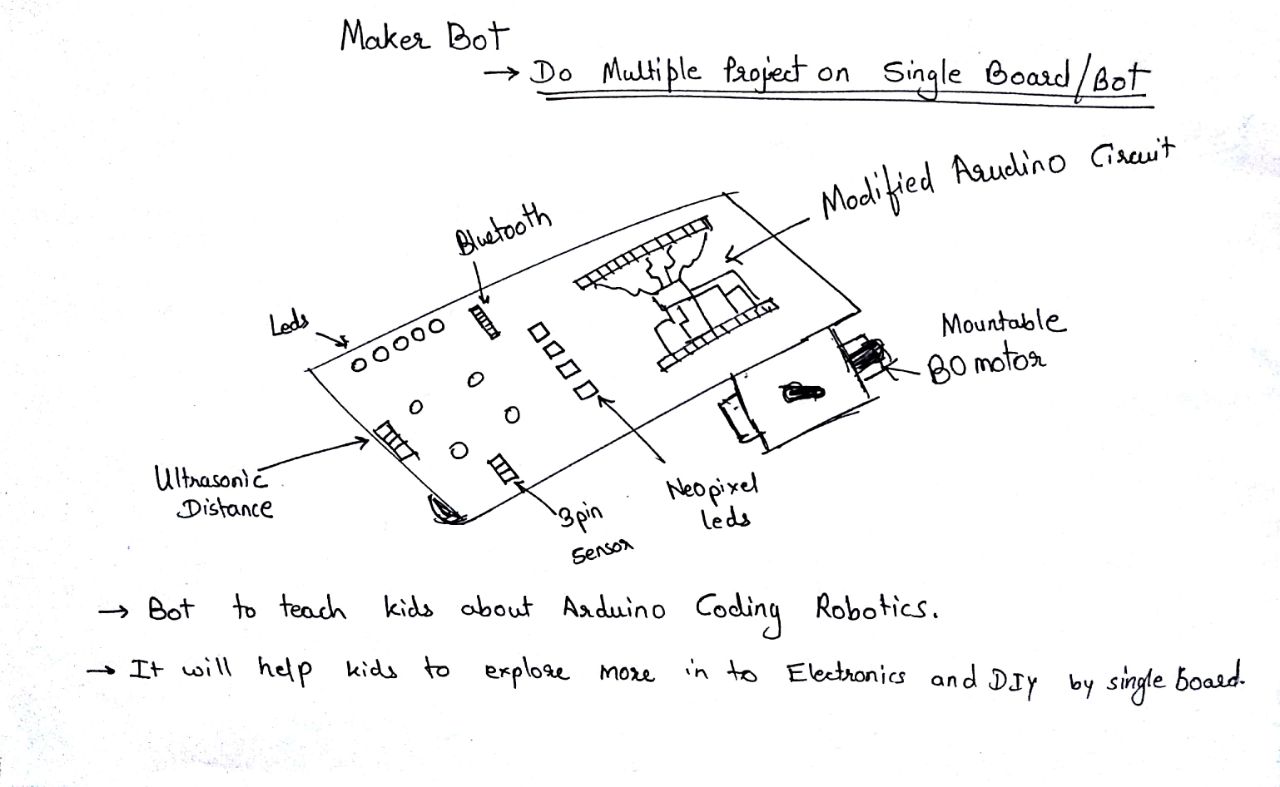 Maker Bot
→ Do Multiple Project on Single Board/Bot
Modified Arudino Circuit
Bluetooth
Leds
Mountable
BO motor
Ultrasonic
Distance
Neopixel
leds
3pin
Sensor
→ Bot to teach kids about Arduino Coding Robotics.
→ It will help kids to explore more in to Electronics and DIY by single board.